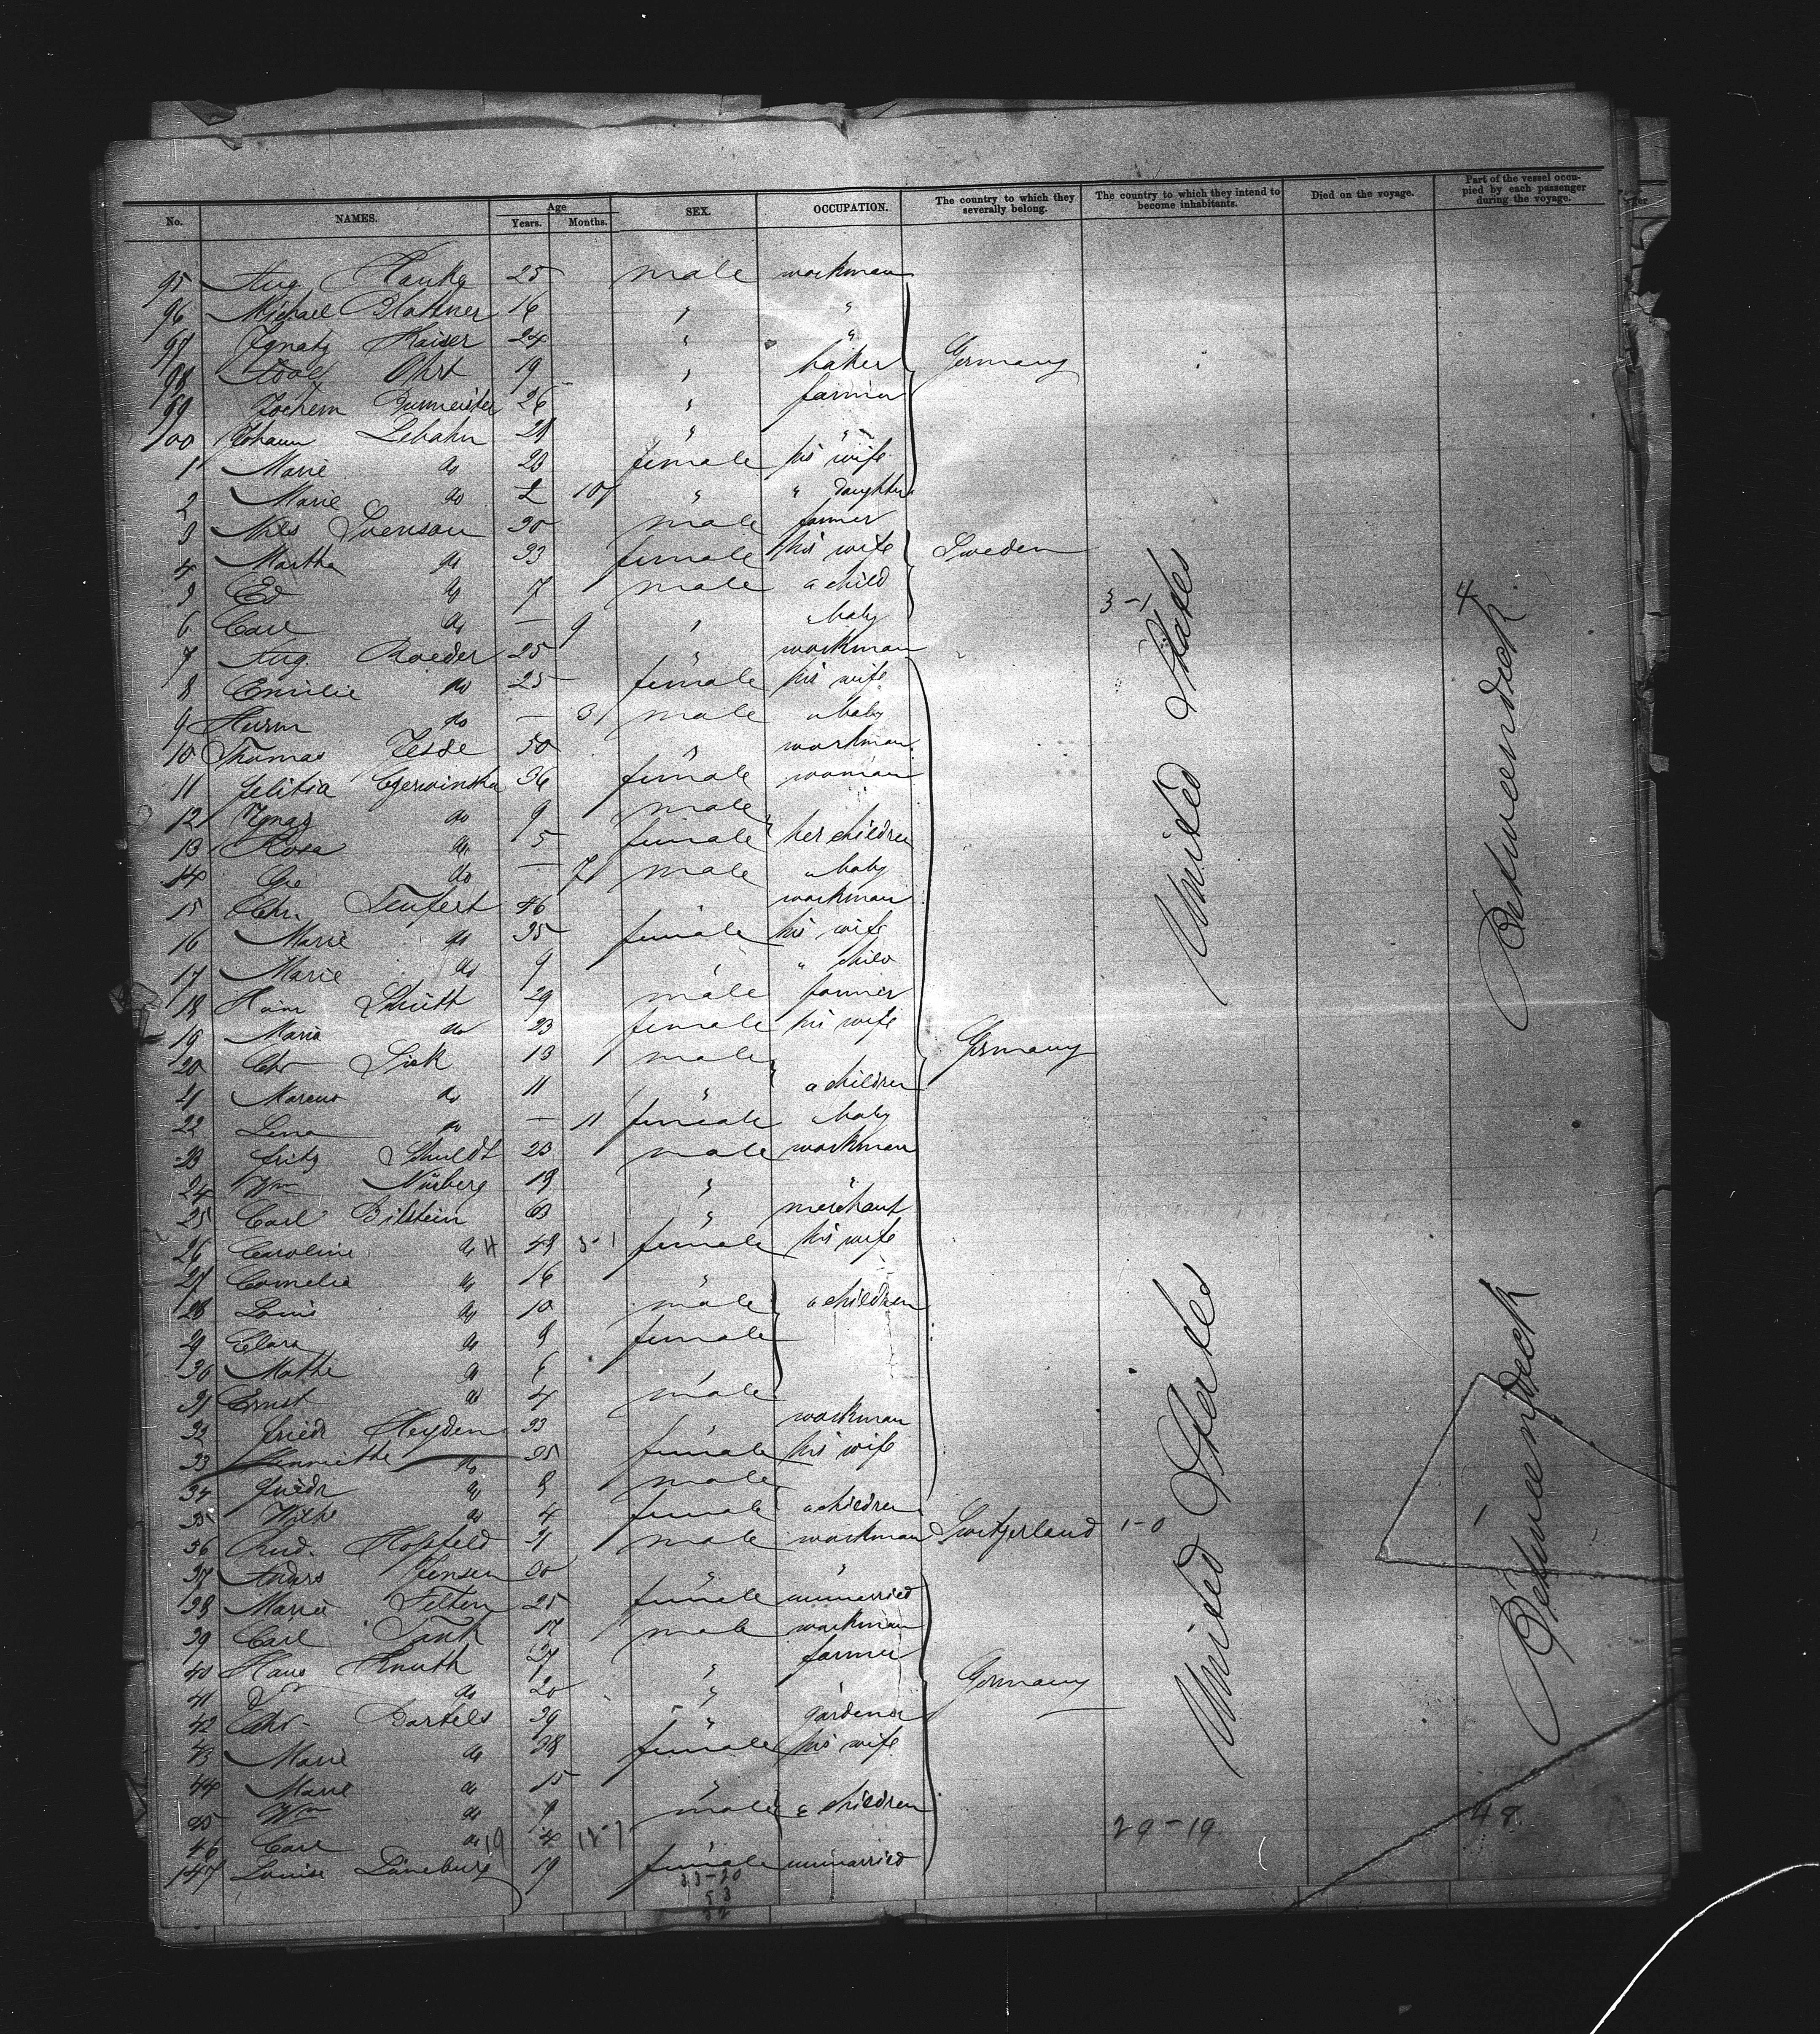 No. NAMES. Age Years. Months. SEX. OCCUPATION. The country to which they severally belong. The country to which they intend to become inhabitants. Died on the voyage. Part of the vessel occupied by each passenger during the voyage.
95 Aug. Hanke 25 male workman
96 Michael Blattner 16 " "
97 Ignatz Kaiser 24 " "
98 Adolf Ohrt 19 " baker Germany
99 Jochem Burmeister 26 " farmer
100 Johann Lebahn 28 " "
1 Marie do 23 female his wife
2 Marie do 2 10 " " daughter
3 Nils Svenson 30 male farmer
4 Martha do 33 female his wife Sweden
5 Ed do 7 male a child 3-1 4
6 Carl do — 9 " " baby
7 Aug. Roeder 25 " workman
8 Emilie do 25 female his wife
9 Herm do — 3 male " baby
10 Thomas Jesde 50 " workman
11 Felitia Czerwinska 36 female woman
12 Ignaz do 9 male
13 Rosa do 5 female her children
14 do — 7 male " baby
15 Chr. Seufert 46 workman
16 Marie do 35 female his wife
17 Marie do 9 " " child
18 Heinr Schütt 29 male farmer
19 Maria do 23 female his wife
20 Chr Sick 13 male Germany
21 Marcus do 11 " " children
22 Lena do — 11 female " baby
23 Fritz Schuldt 23 male workman
24 Wm Nürberg 19 " "
25 Carl Bilstein 63 " merchant
26 Caroline do 48 female his wife
27 Cornelia do 16 "
28 Louis do 10 male " children
29 Clara do 8 female
30 Mathe do 6 "
31 Ernst do 4 male
32 Friedr Heyden 33 " workman
33 Henriette do 35 female his wife
34 Friedr do 8 male
35 Wilhe do 4 female " children
36 Rud. Hopfeld 31 male workman Switzerland 1-0 1
37 Anders Jensen 30 " "
38 Marie Filter 25 female unmarried
39 Carl Tank 17 male workman
40 Hans Knuth 27 " farmer
41 do 20 " Germany
42 Chr. Bartels 39 " gardener
43 Marie do 38 female his wife
44 Marie do 15 "
45 Wm do 9 male " children
46 Carl do 4 " 29-19 48
147 Louise Lüneburg 19 female unmarried
33-20
53
United States
Betweendeck
United States
Betweendeck